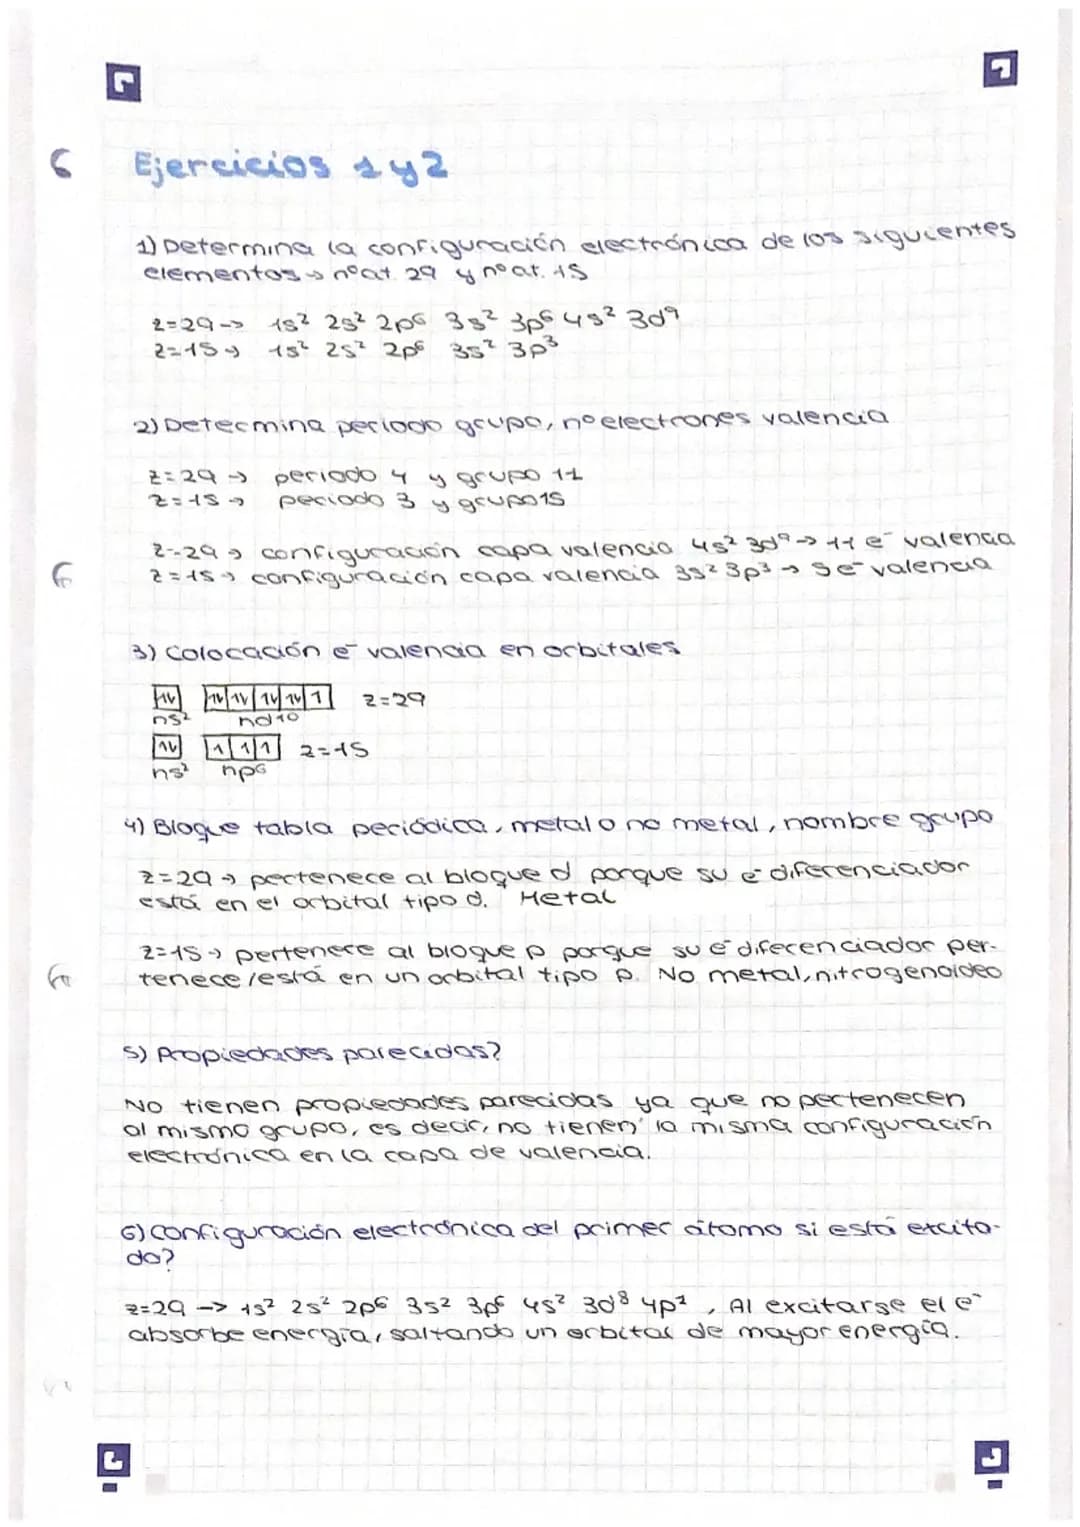 Ejercicios 1 y 2
1) Determina la configuración electrónica de los siguientes
elementos → nºat. 29 y nºat. 15
z=29 -> 1s² 2s² 2p⁶ 3s² 3p⁶ 4s² 3d⁹
z=15 → 1s² 2s² 2p⁶ 3s² 3p³
2) Determina periodo grupo, nºelectrones valencia
z=29 → periodo 4 y grupo 11
z=15 → periodo 3 y grupo15
z=29 → configuración capa valencia 4s² 3d⁹ → 11 e⁻ valencia
z=15 → configuración capa valencia 3s² 3p³ → 5e⁻ valencia
3) Colocación e⁻ valencia en orbitales
↑↓ ↑↓ ↑↓ ↑↓ ↑↓ 1 z=29
ns² nd¹⁰
↑↓ 1 1 1 z=15
ns² np⁶
4) Bloque tabla periódica, metal o no metal, nombre grupo
z=29 → pertenece al bloque d porque su e⁻ diferenciador
está en el orbital tipo d. Metal
z=15 → pertenece al bloque p porque su e⁻ diferenciador per-
tenece/está en un orbital tipo p. No metal, nitrogenoideo
5) Propiedades parecidas?
No tienen propiedades parecidas ya que no pertenecen
al mismo grupo, es decir, no tienen la misma configuración
electrónica en la capa de valencia.
6) Configuración electrónica del primer átomo si está excita-
do?
z=29 -> 1s² 2s² 2p⁶ 3s² 3p⁶ 4s² 3d⁸ 4p¹ , Al excitarse el e⁻
absorbe energía, saltando un orbital de mayor energía.